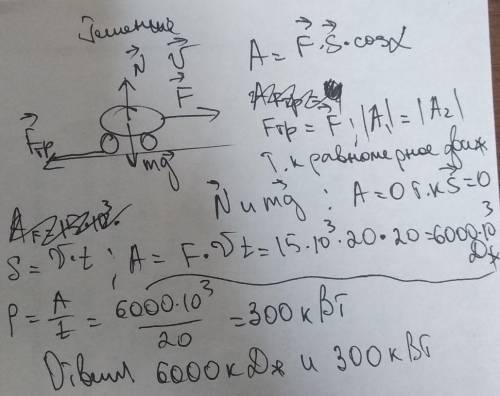 Решение
N⃗ V⃗
F⃗
F⃗тр
mg⃗
A = F⃗·S⃗·cosα
Fтр = F⃗ ; |A₁| = |A₂|
т.к равномерное движ
N⃗ и mg⃗ : A = 0 т.к S⃗ = 0
S = V⃗·t ; A = F·Vt = 15·10³·20·20 = 6000·10³ Дж
P = A/t = 6000·10³/20 = 300 кВт
Ответ 6000 кДж и 300 кВт